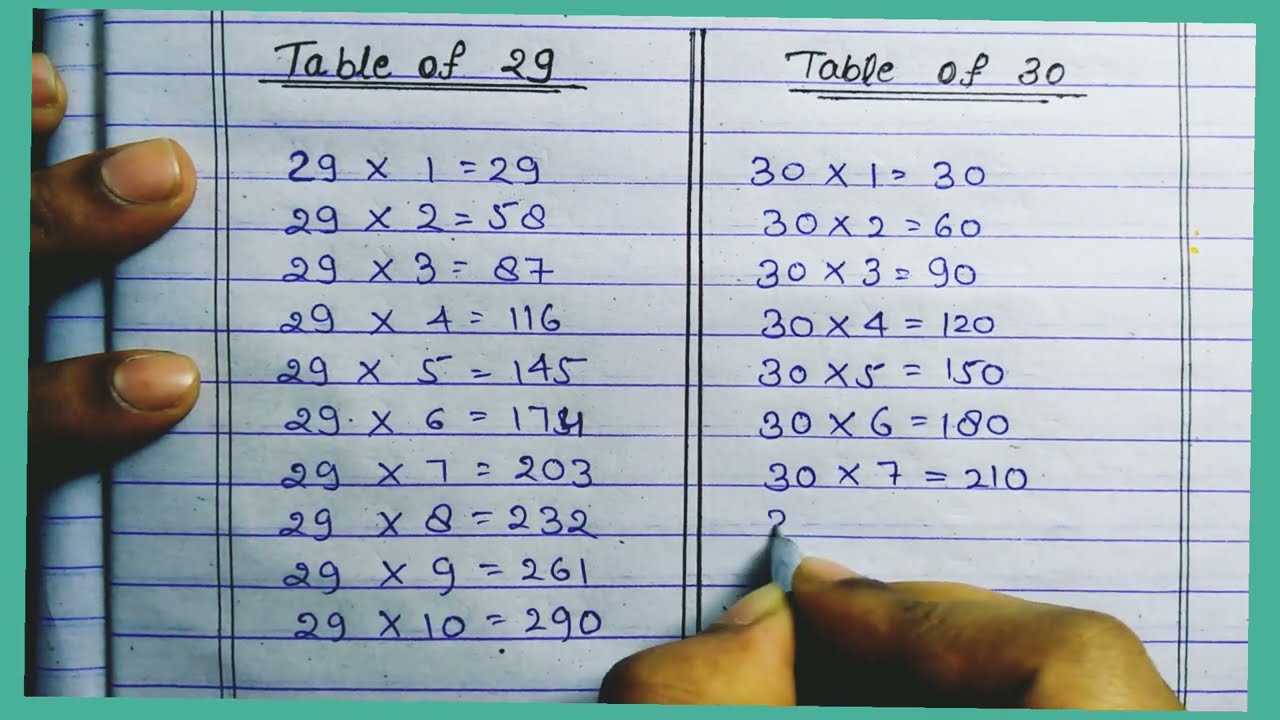 Table of 29
29 × 1 = 29
29 × 2 = 58
29 × 3 = 87
29 × 4 = 116
29 × 5 = 145
29 × 6 = 174
29 × 7 = 203
29 × 8 = 232
29 × 9 = 261
29 × 10 = 290
Table of 30
30 × 1 = 30
30 × 2 = 60
30 × 3 = 90
30 × 4 = 120
30 × 5 = 150
30 × 6 = 180
30 × 7 = 210